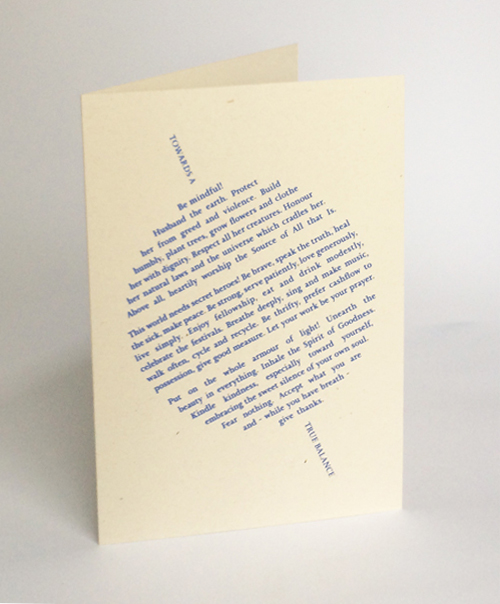 TOWARDS A
Be mindful!
Husband the earth. Protect
her from greed and violence. Build
humbly, plant trees, grow flowers and clothe
her with dignity. Respect all her creatures. Honour
her natural laws and the universe which cradles her.
Above all, heartily worship the Source of All that Is.
This world needs secret heroes! Be brave, speak the truth, heal
the sick, make peace. Be strong, serve patiently, love generously,
live simply. Enjoy fellowship, eat and drink modestly,
celebrate the festivals. Breathe deeply, sing and make music,
walk often, cycle and recycle. Be thrifty, prefer cashflow to
possession, give good measure. Let your work be your prayer.
Put on the whole armour of light! Unearth the
beauty in everything. Inhale the Spirit of Goodness.
Kindle kindness, especially toward yourself,
embracing the sweet silence of your own soul.
Fear nothing. Accept what you are
and - while you have breath -
give thanks.
TRUE BALANCE